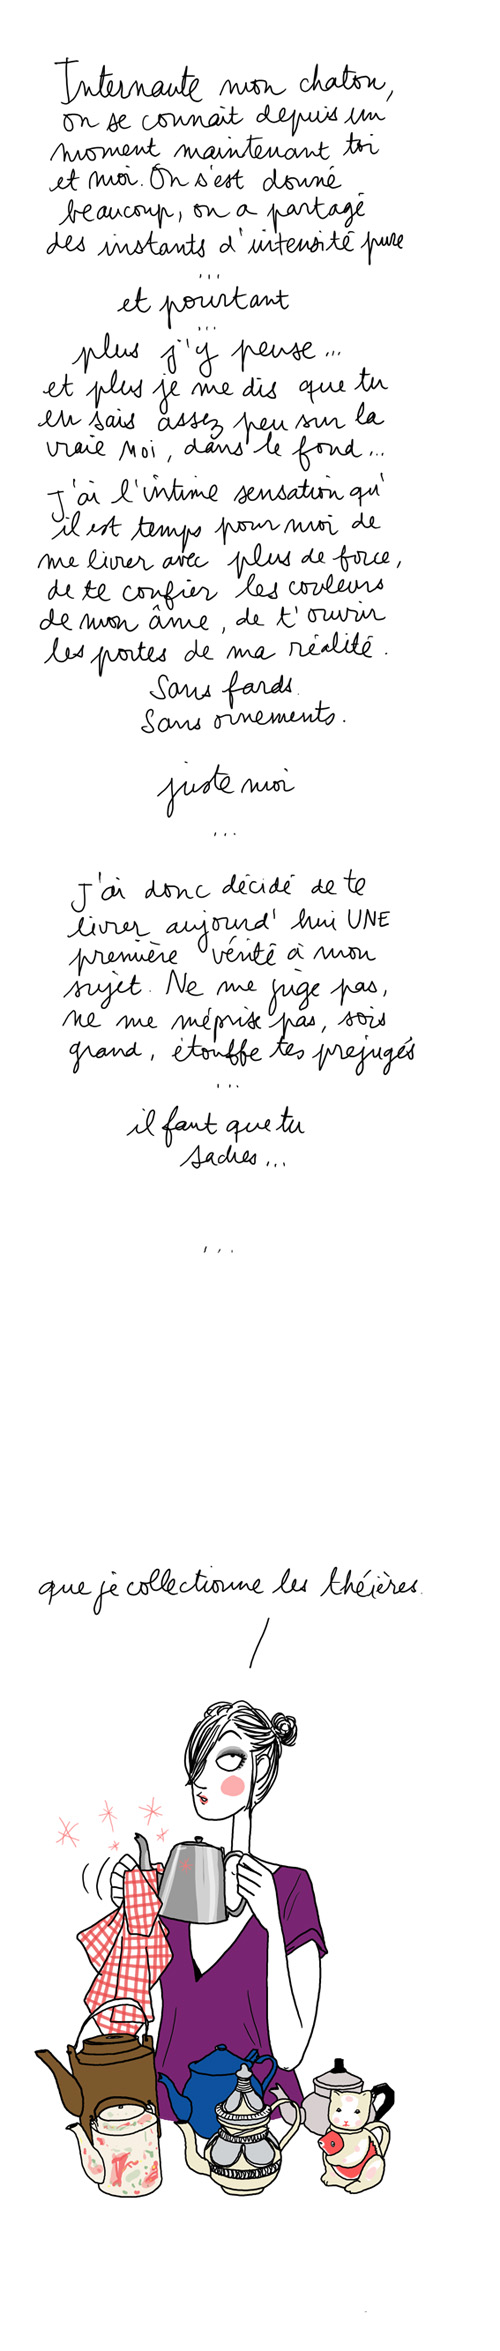 Internaute mon chaton,
on se connait depuis un
moment maintenant toi
et moi. On s'est donné
beaucoup, on a partagé
des instants d'intensité pure
...
et pourtant
...
plus j'y pense...
et plus je me dis que tu
en sais assez peu sur la
vraie moi, dans le fond...
J'ai l'intime sensation qu'
il est temps pour moi de
me livrer avec plus de force,
de te confier les couleurs
de mon âme, de t'ouvrir
les portes de ma réalité.
Sans fards.
Sans ornements.
juste moi
...
J'ai donc décidé de te
livrer aujourd'hui UNE
première vérité à mon
sujet. Ne me juge pas,
ne me méprise pas, sois
grand, étouffe tes préjugés
...
il faut que tu
saches...
...
que je collectionne les théières.